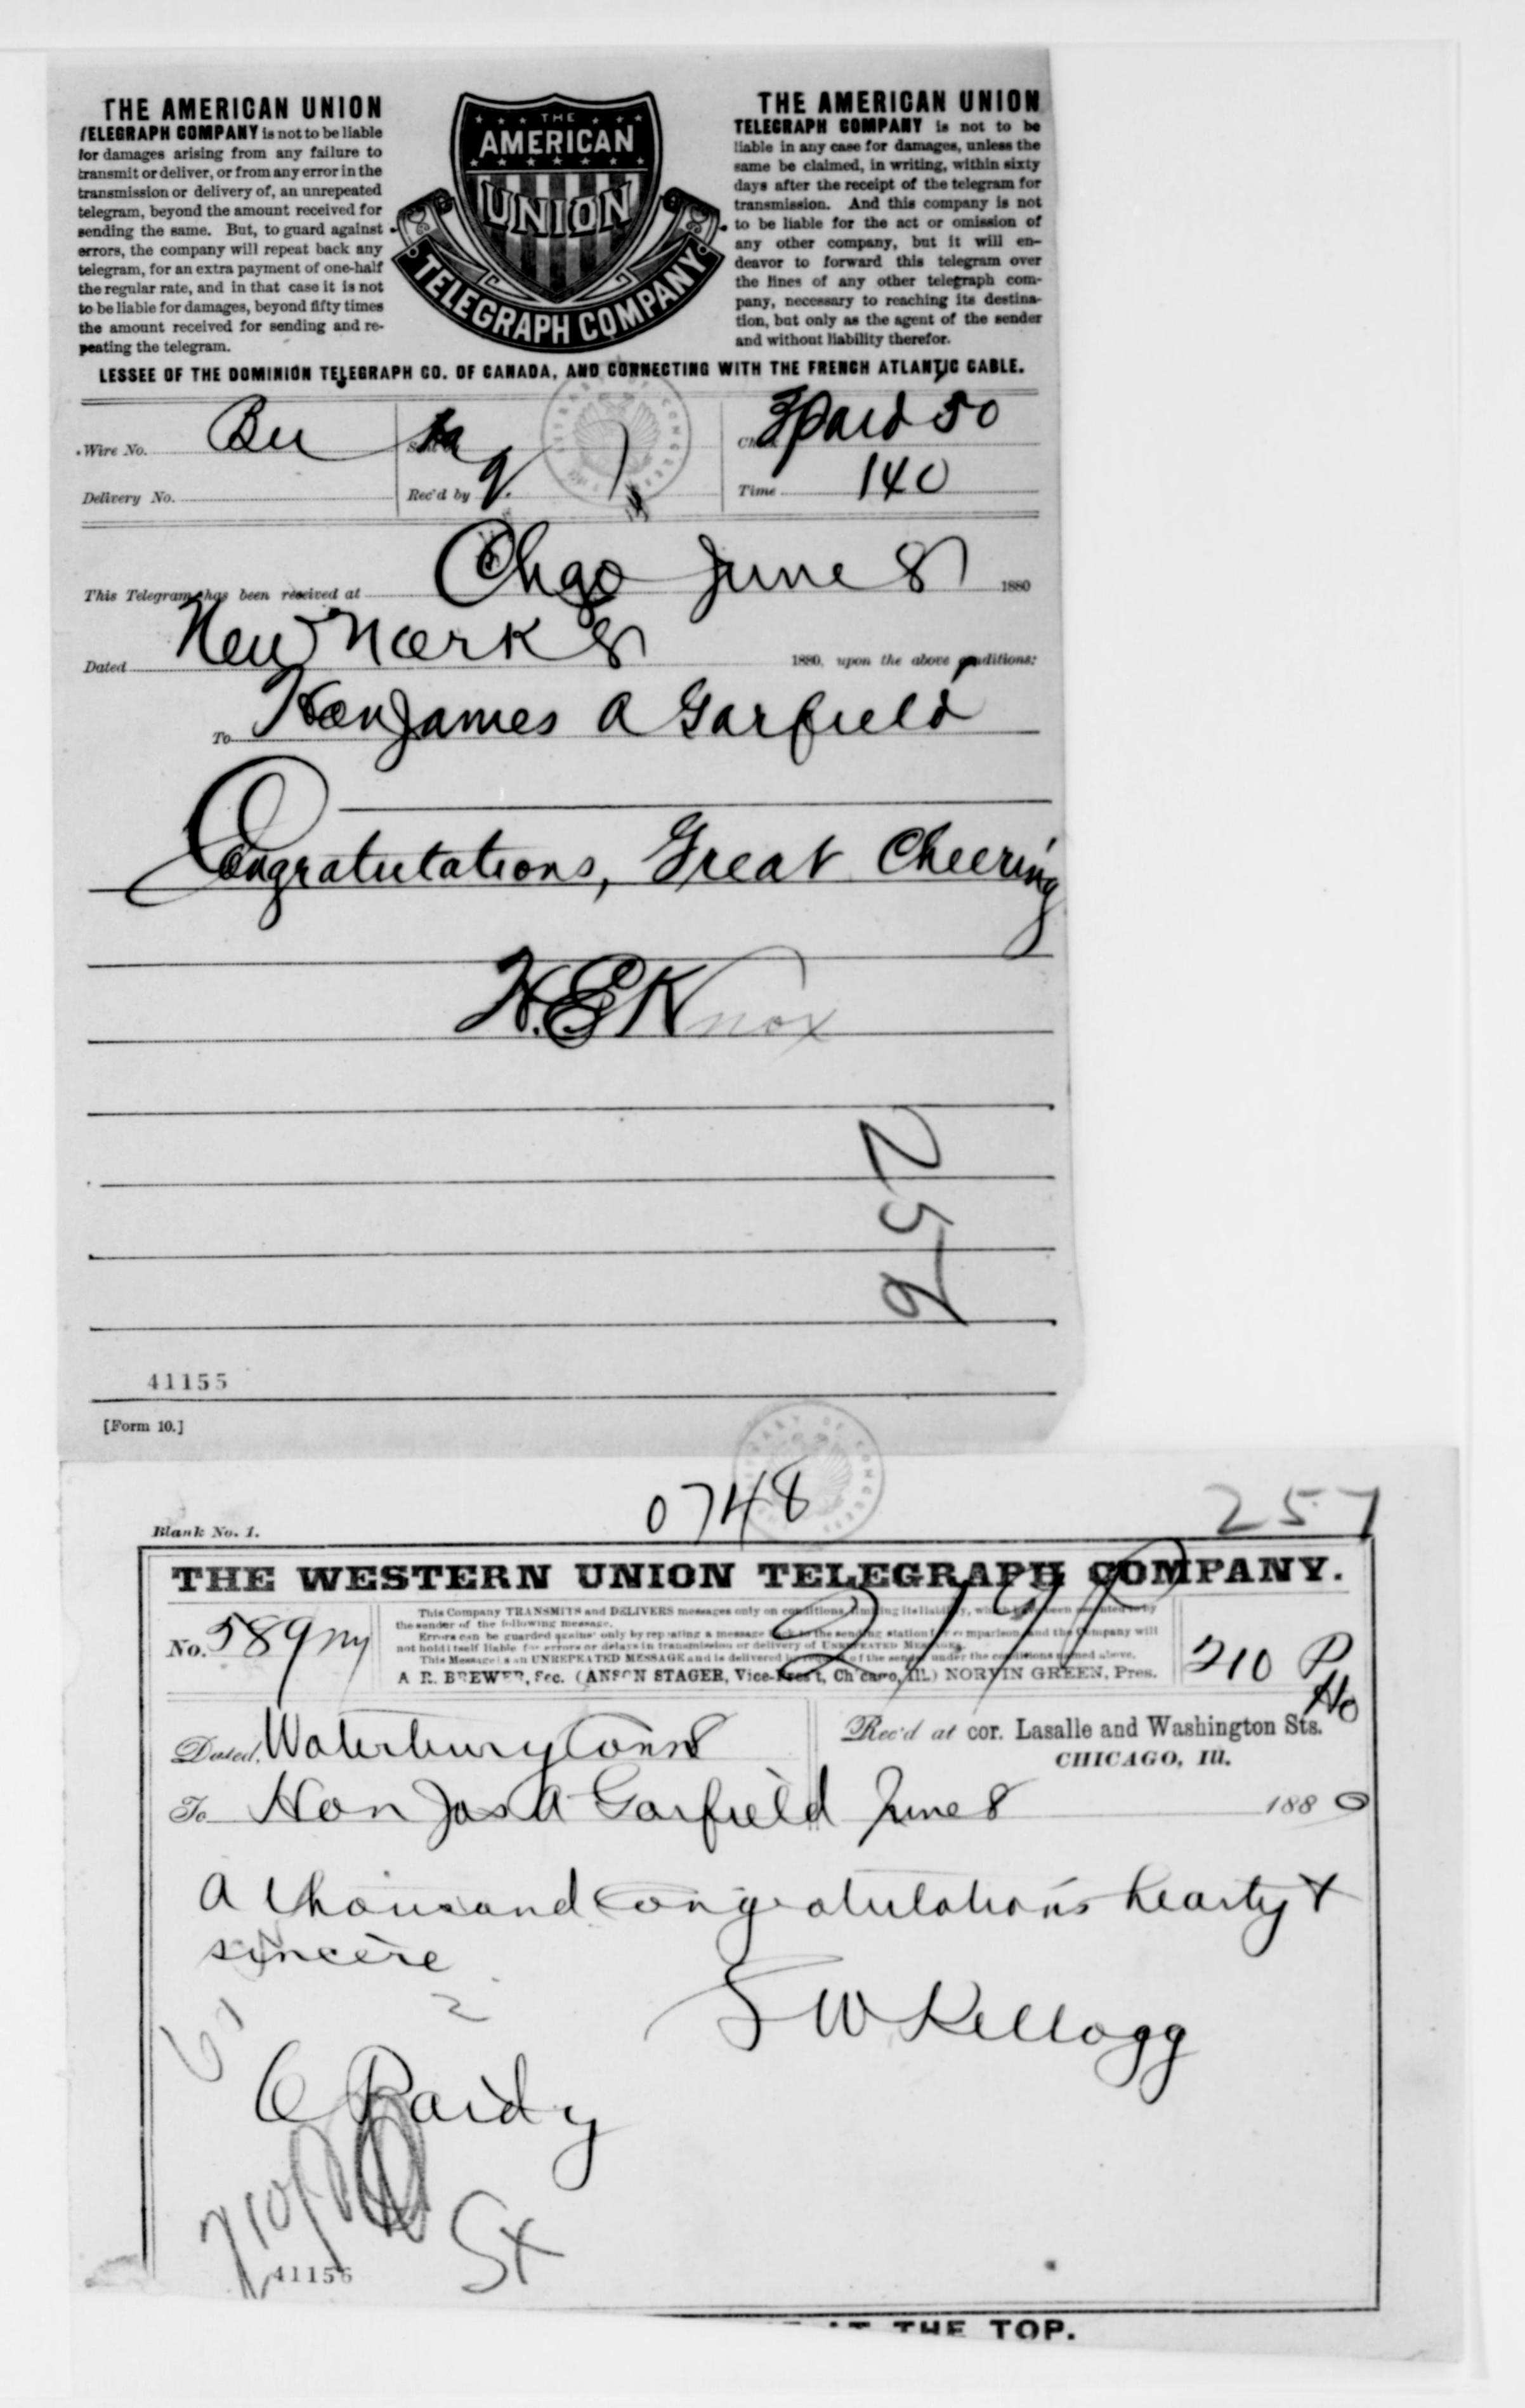 THE AMERICAN UNION
TELEGRAPH COMPANY is not to be liable
for damages arising from any failure to
transmit or deliver, or from any error in the
transmission or delivery of, an unrepeated
telegram, beyond the amount received for
sending the same. But, to guard against
errors, the company will repeat back any
telegram, for an extra payment of one-half
the regular rate, and in that case it is not
to be liable for damages, beyond fifty times
the amount received for sending and re-
peating the telegram.
THE
AMERICAN
UNION
TELEGRAPH COMPANY
THE AMERICAN UNION
TELEGRAPH COMPANY is not to be
liable in any case for damages, unless the
same be claimed, in writing, within sixty
days after the receipt of the telegram for
transmission. And this company is not
to be liable for the act or omission of
any other company, but it will en-
deavor to forward this telegram over
the lines of any other telegraph com-
pany, necessary to reaching its destina-
tion, but only as the agent of the sender
and without liability therefor.
LESSEE OF THE DOMINION TELEGRAPH CO. OF CANADA, AND CONNECTING WITH THE FRENCH ATLANTIC CABLE.
Wire No.
3 paid 50
Delivery No.
Rec'd by
Time 140
This Telegram has been received at Chgo June 8 1880
Dated New York 8 1880, upon the above conditions;
To Hon James A Garfield
Congratulations, Great Cheering
H. E Knox
256
41155
[Form 10.]
LIBRARY OF CONGRESS
0748
257
Blank No. 1.
THE WESTERN UNION TELEGRAPH COMPANY.
No. 589 ny
This Company TRANSMITS and DELIVERS messages only on conditions, limiting its liability, which have been assented to by
the sender of the following message.
Errors can be guarded against only by repeating a message back to the sending station for comparison, and the Company will
not hold itself liable for errors or delays in transmission or delivery of UNREPEATED MESSAGES.
This Message is an UNREPEATED MESSAGE and is delivered by request of the sender under the conditions named above.
A. R. BREWER, Sec. (ANSON STAGER, Vice-Pres't, Chicago, Ill.) NORVIN GREEN, Pres.
210 P
Dated, Waterbury Conn 8
Rec'd at cor. Lasalle and Washington Sts.
CHICAGO, Ill.
To Hon Jas A Garfield June 8 1880
A thousand congratulations hearty &
sincere
S W Kellogg
6 Paid
41156
THE TOP.